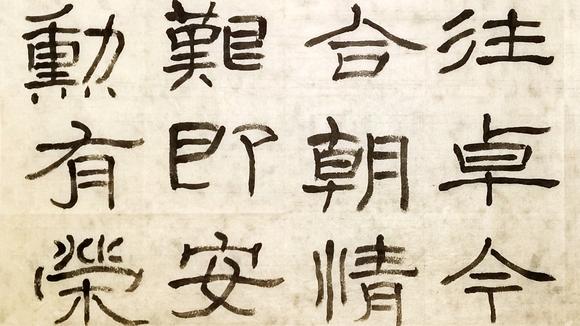 往卓今
合朝情
艱即安
勳有榮